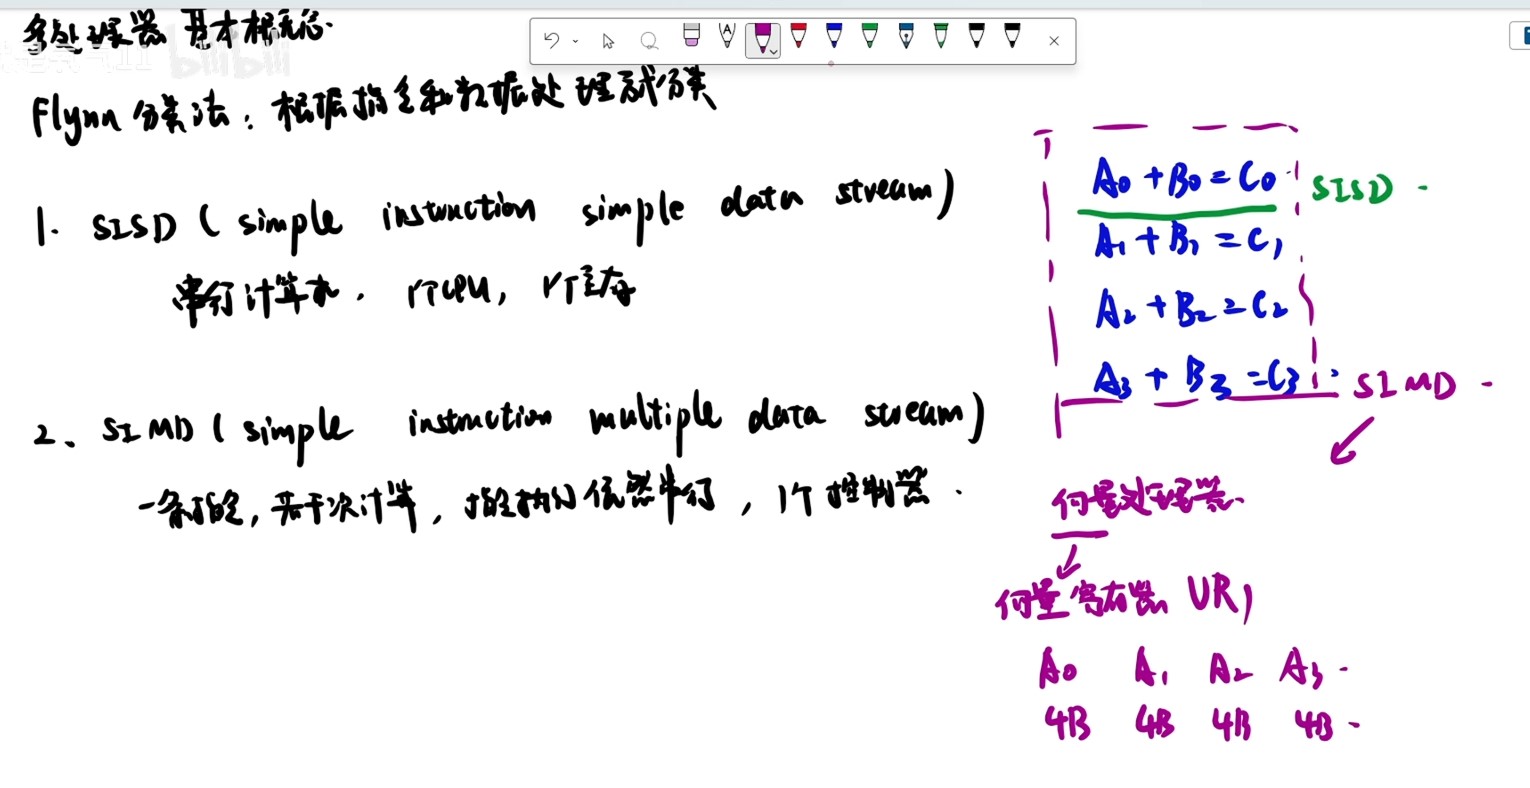 多处理器 基本概念.
bilibili
Flynn 分类法: 根据指令和数据处理方式分类
1. SISD ( simple instruction simple data stream)
串行计算机. 1个CPU, 1个主存
2、SIMD ( simple instruction multiple data stream)
一条指令, 若干次计算, 指令执行依然串行, 1个控制器.
A0 + B0 = C0
SISD
A1 + B1 = C1
A2 + B2 = C2
A3 + B3 = C3
SIMD
向量处理器.
向量寄存器 VR
A0 A1 A2 A3
4B 4B 4B 4B